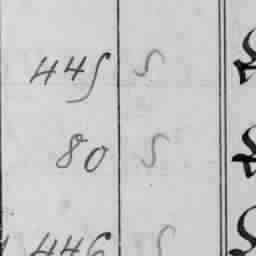 445 S
80 S
446 S